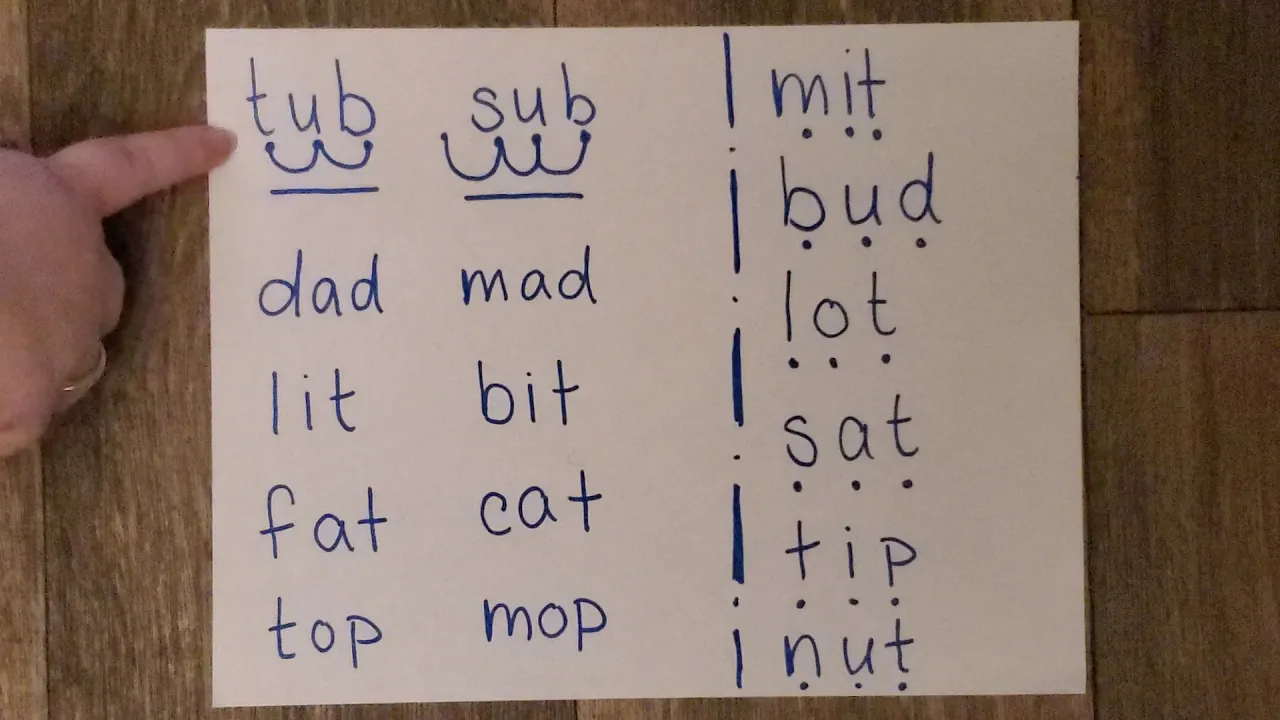 tub sub
dad mad
lit bit
fat cat
top mop
mit
bud
lot
sat
tip
nut